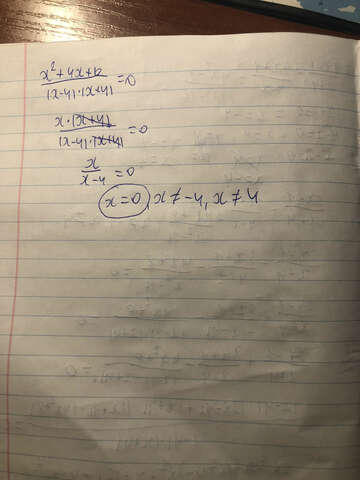 x²+4x+12/(x-4)·(x+4)=0
x·(x+4)/(x-4)·(x+4)=0
x/x-4=0
x=0, x≠-4, x≠4